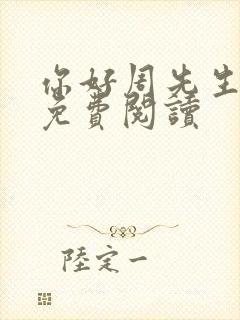 你好周先生
免費閱讀
陸定一